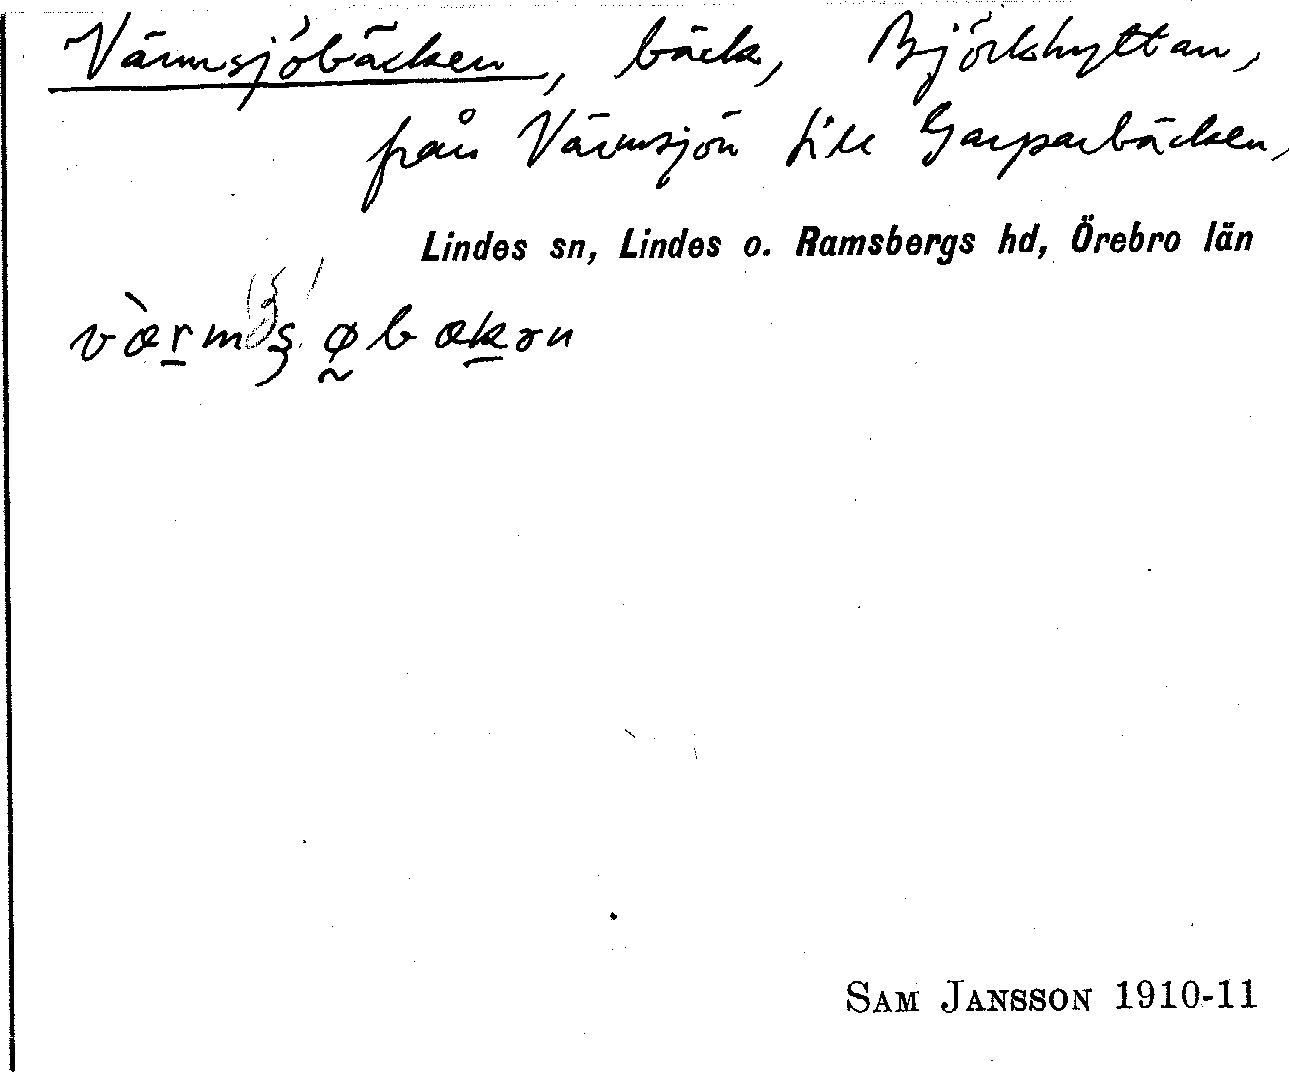 Värmsjöbäcken, bäck, Björkhyttan,
från Värmsjön till Garparbäcken,
Lindes sn, Lindes o. Ramsbergs hd, Örebro län
SAM JANSSON 1910-11